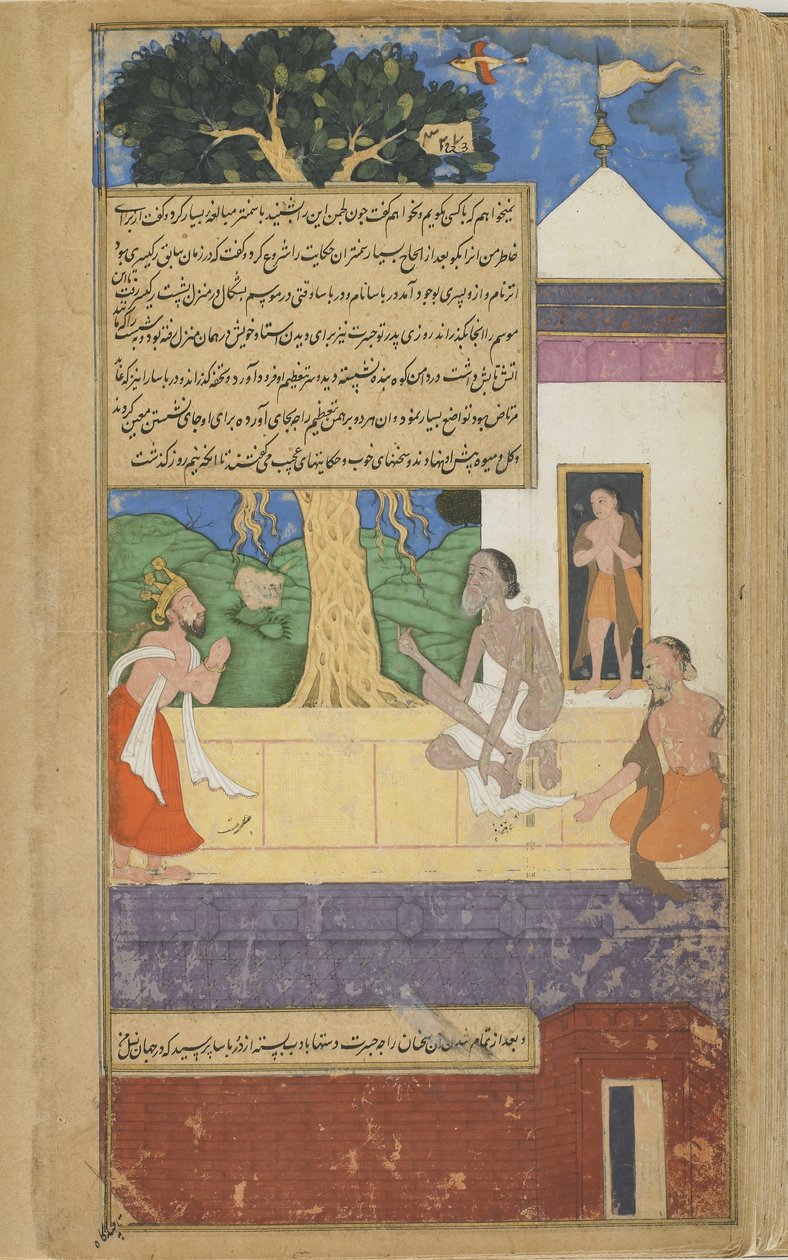 نمیخواهم که با کسی بگویم و نخواهم گفت چون لچمن این را بشنید با سمنتر مبالغهٔ بسیار کرد و گفت از برای
خاطر من آنرا بگو بعد از الحاح بسیار سمنتر آن حکایت را شروع کرد و گفت که در زمان سابق رکیسری بود
اتر نام و از و پسری بوجود آمد درباسا نام و درباسا وقتی در موسم بشکال در منزل بشست رکیسر رفت تا این
موسم را آنجا بگذراند روزی پدر تو جسرت نیز برای دیدن استاد خویش در همان منزل رفته بود و بشست را که مانند
آتش تابش داشت در دامن کوه نشسته دید و سر تعظیم او فرود آورد و تحفه گذراند و درباسا را نیز که عابد
مرتاض بود تواضع بسیار نمود و آن هر دو برهمن تعظیم راجه بجای آورده برای او جای نشستن معین کردند
و گل و میوه پیش او نهادند و سخنهای خوب و حکایتهای عجیب می گفتند تا آنکه نیم روز گذشت
و بعد از تمام شدن آن سخنان راجه جسرت دستها بادب بسته از درباسا پرسید که در جهان نسل من